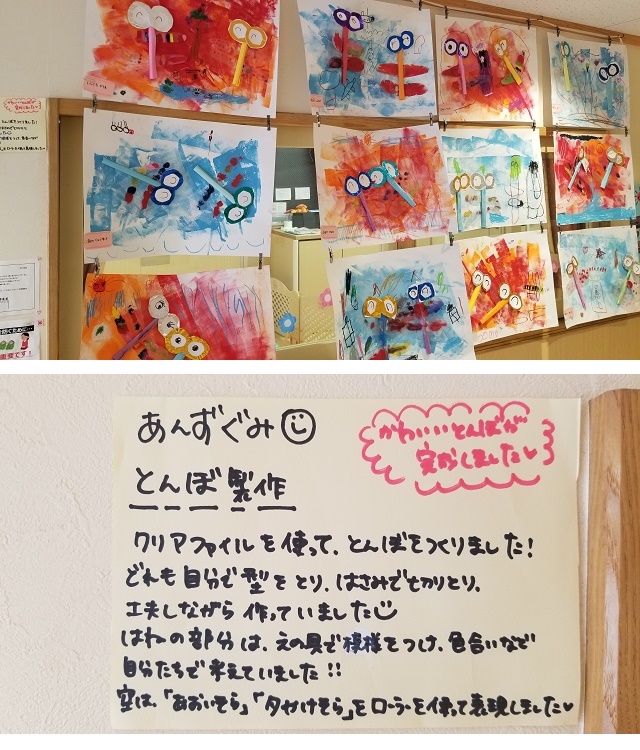 あんずぐみ
かわいいとんぼが
完成しました♡
とんぼ製作
クリアファイルを使って、とんぼをつくりました!
どれも自分で型をとり、はさみで切りとり、
工夫しながら作っていました
はねの部分は、えの具で模様をつけ、色合いなど
自分たちで考えていました!!
空は、「あおいそら」「夕やけそら」をローラーを使って表現しました♡